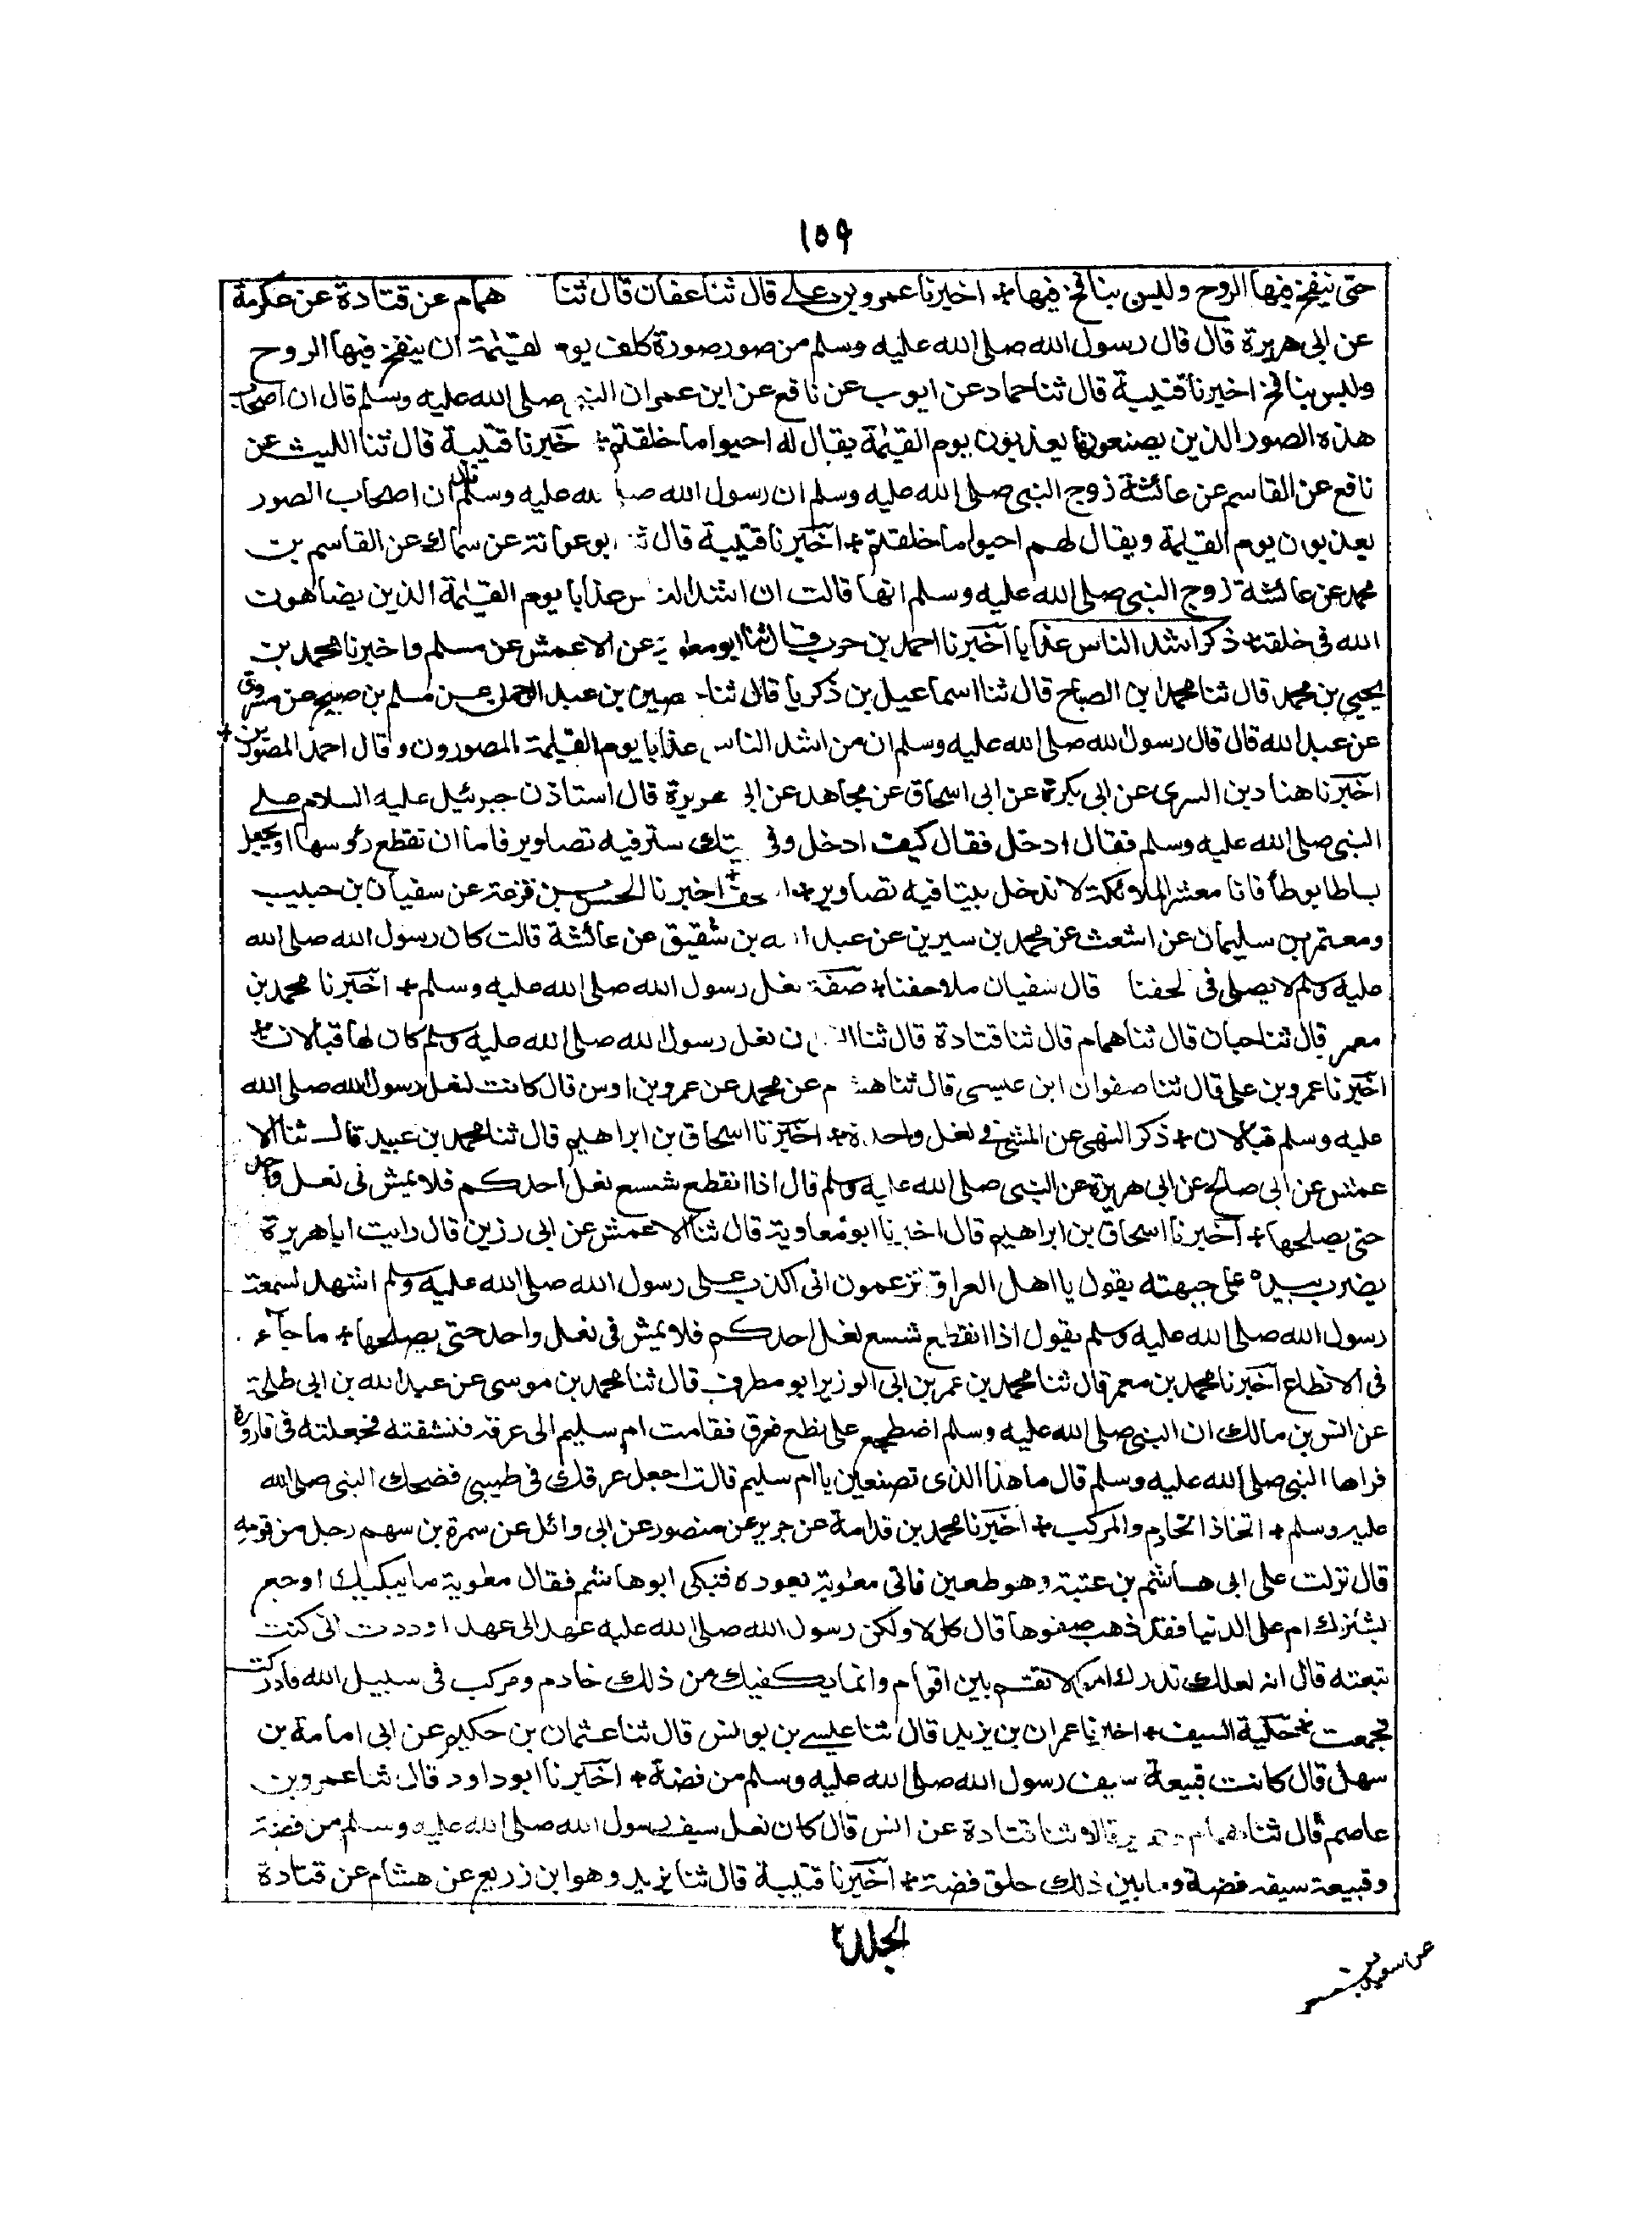 ١٥٩
حتى ينفخ فيها الروح وليس بنافخ فيها + اخبرنا عمرو بن علي قال ثنا عفان قال ثنا همام عن قتادة عن عكرمة
عن ابي هريرة قال قال رسول الله صلى الله عليه وسلم من صور صورة كلف يوم لقيٰمة ان ينفخ فيها الروح
وليس بنافخ اخبرنا قتيبة قال ثنا حماد عن ايوب عن نافع عن ابن عمر ان النبي صلى الله عليه وسلم قال ان اصحاب
هذه الصور الذين يصنعونها يعذبون يوم القيٰمة يقال له احيوا ما خلقتم + خبرنا قتيبة قال ثنا الليث عن
نافع عن القاسم عن عائشة زوج النبي صلى الله عليه وسلم ان رسول الله صلى لله عليه وسلم قال ان اصحاب الصور
يعذبون يوم القيٰمة ويقال لهم احيوا ما خلقتم + اخبرنا قتيبة قال ثنا ابو عوانة عن سماك عن القاسم بن
محمد عن عائشة زوج النبي صلى الله عليه وسلم انها قالت ان اشد الناس عذابا يوم القيٰمة الذين يضاهون
الله في خلقه + ذكر اشد الناس عذابا اخبرنا احمد بن حرب قال ثنا ابو معٰوية عن الاعمش عن مسلم واخبرنا محمد بن
يحيى بن محمد قال ثنا محمد ابن الصباح قال ثنا اسماعيل بن ذكريا قال ثنا حصين بن عبد الرحمن عن مسلم بن صبيح عن مسروق
عن عبد الله قال قال رسول الله صلى الله عليه وسلم ان من اشد الناس عذابا يوم القيٰمة المصورون وقال احمد المصورين +
اخبرنا هناد بن السري عن ابي بكرة عن ابي اسحاق عن مجاهد عن ابي هريرة قال استاذن جبرئيل عليه السلام على
النبي صلى الله عليه وسلم فقال ادخل فقال كيف ادخل وفي بيتك ستر فيه تصاوير فاما ان تقطع رؤسها او يجعل
بساطا يوطأ فانا معشر الملائكة لا ندخل بيتا فيه تصاوير + اللحف + اخبرنا الحسن بن قزعة عن سفيان بن حبيب
ومعتمر بن سليمان عن اشعث عن محمد بن سيرين عن عبد الله بن شقيق عن عائشة قالت كان رسول الله صلى الله
عليه وسلم لا يصلي في لحفنا قال سفيان ملاحفنا + صفة نعل رسول الله صلى الله عليه وسلم + اخبرنا محمد بن
معمر قال ثنا حبان قال ثنا همام قال ثنا قتادة قال ثنا انس ان نعل رسول الله صلى الله عليه وسلم كان لها قبالان +
اخبرنا عمرو بن علي قال ثنا صفوان ابن عيسى قال ثنا هشام عن محمد عن عمرو بن اوس قال كانت لنعل رسول الله صلى الله
عليه وسلم قبالان + ذكر النهي عن المشي في نعل واحدة + اخبرنا اسحاق بن ابراهيم قال ثنا محمد بن عبيد قال ثنا الا
عمش عن ابي صالح عن ابي هريرة عن النبي صلى الله عليه وسلم قال اذا انقطع شسع نعل احدكم فلا يمش في نعل واحد
حتى يصلحها + اخبرنا اسحاق بن ابراهيم قال اخبرنا ابو معاوية قال ثنا الاعمش عن ابي رزين قال رايت ابا هريرة
يضرب بيده على جبهته يقول يا اهل العراق تزعمون اني اكذب على رسول الله صلى الله عليه وسلم اشهد لسمعت
رسول الله صلى الله عليه وسلم يقول اذا انقطع شسع نعل احدكم فلا يمش في نعل واحد حتى يصلحها + ما جآء
في الانطاع اخبرنا محمد بن معمر قال ثنا محمد بن عمر بن ابي الوزير ابو مطرف قال ثنا محمد بن موسى عن عبد الله بن ابي طلحة
عن انس بن مالك ان النبي صلى الله عليه وسلم اضطجع على نطع فعرق فقامت ام سليم الى عرقه فنشفته فجعلته في قارورة
فراها النبي صلى الله عليه وسلم قال ما هذا الذي تصنعين يا ام سليم قالت اجعل عرقك في طيبي فضحك النبي صلى الله
عليه وسلم + اتخاذ الخادم والمركب + اخبرنا محمد بن قدامة عن جرير عن منصور عن ابي وائل عن سمرة بن سهم رجل من قومه
قال نزلت على ابي هاشم بن عتبة وهو طعين فاتى معٰوية يعوده فبكى ابو هاشم فقال معٰوية ما يبكيك اوجع
يشئزك ام على الدنيا فقد ذهب صفوها قال كل لا ولكن رسول الله صلى الله عليه عهد الى عهد اوددت اني كنت
تبعته قال انه لعلك تدرك اموالا تقسم بين اقوام وانما يكفيك من ذلك خادم ومركب في سبيل الله فادركت
فجمعت + حلية السيف + اخبرنا عمران بن يزيد قال ثنا عيسى بن يونس قال ثنا عثمان بن حكيم عن ابي امامة بن
سهل قال كانت قبيعة سيف رسول الله صلى الله عليه وسلم من فضة + اخبرنا ابو داود قال ثنا عمرو بن
عاصم قال ثنا همام وجرير قالا ثنا قتادة عن انس قال كان نعل سيف رسول الله صلى الله عليه وسلم من فضة
وقبيعة سيفه فضة وما بين ذلك حلق فضة + اخبرنا قتيبة قال ثنا يزيد وهو ابن زريع عن هشام عن قتادة
الجلد ٢
عن سعيد بن